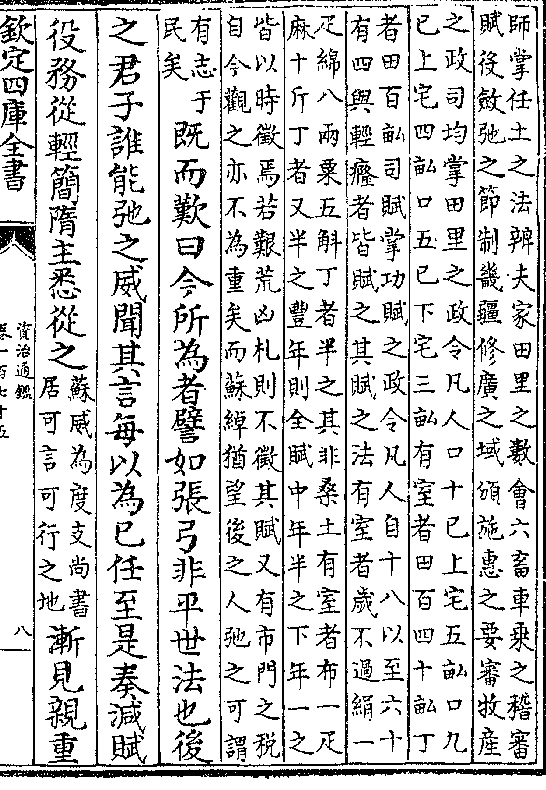 師掌任土之法辨夫家田里之數會六畜車乘之稽審
賦役斂弛之節制畿疆修廣之域頒施惠之要審牧產
之政司均掌田里之政令凡人口十已上宅五畝口九
已上宅四畝口五已下宅三畝有室者田百四十畝丁
者田百畝司賦掌功賦之政令凡人自十八以至六十
有四與輕癃者皆賦之其賦之法有室者歲不過絹一
疋綿八兩粟五斛丁者半之其非桑土有室者布一疋
麻十斤丁者又半之豐年則全賦中年半之下年一之
皆以時徵焉若艱荒凶札則不徵其賦又有市門之税
自今觀之亦不為重矣而蘇綽猶望後之人弛之可謂
有志于
民矣
既而歎曰今所為者譬如張弓非平世法也後
之君子誰能弛之威聞其言每以為己任至是奏減賦
役務從輕簡隋主悉從之
蘇威為度支尚書
居可言可行之地
漸見親重
欽定四庫全書
資治通鑑
卷一百七十五
八